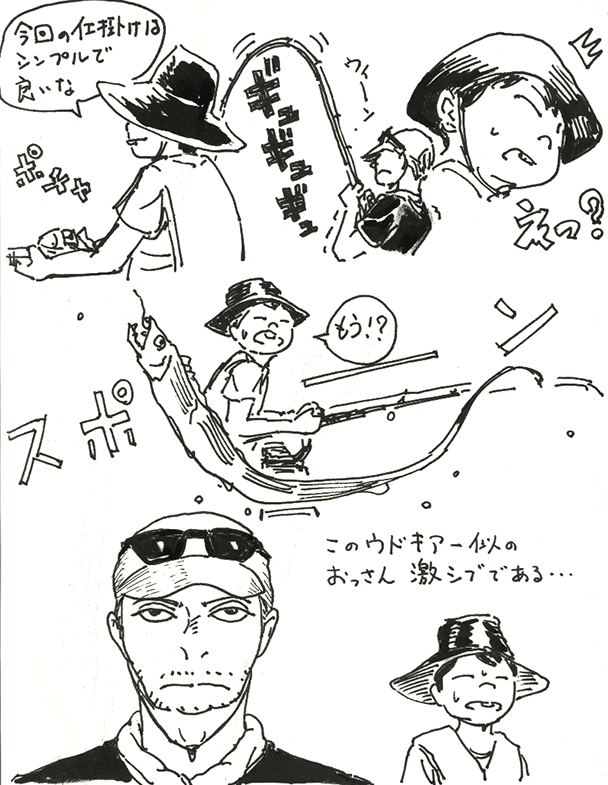 今回の仕掛けは
シンプルで
良いな
ポチャ
ギュギュギュ
ウィーン
えっ?
もう!?
スポーン
このウドキアー似の
おっさん 激シブである…